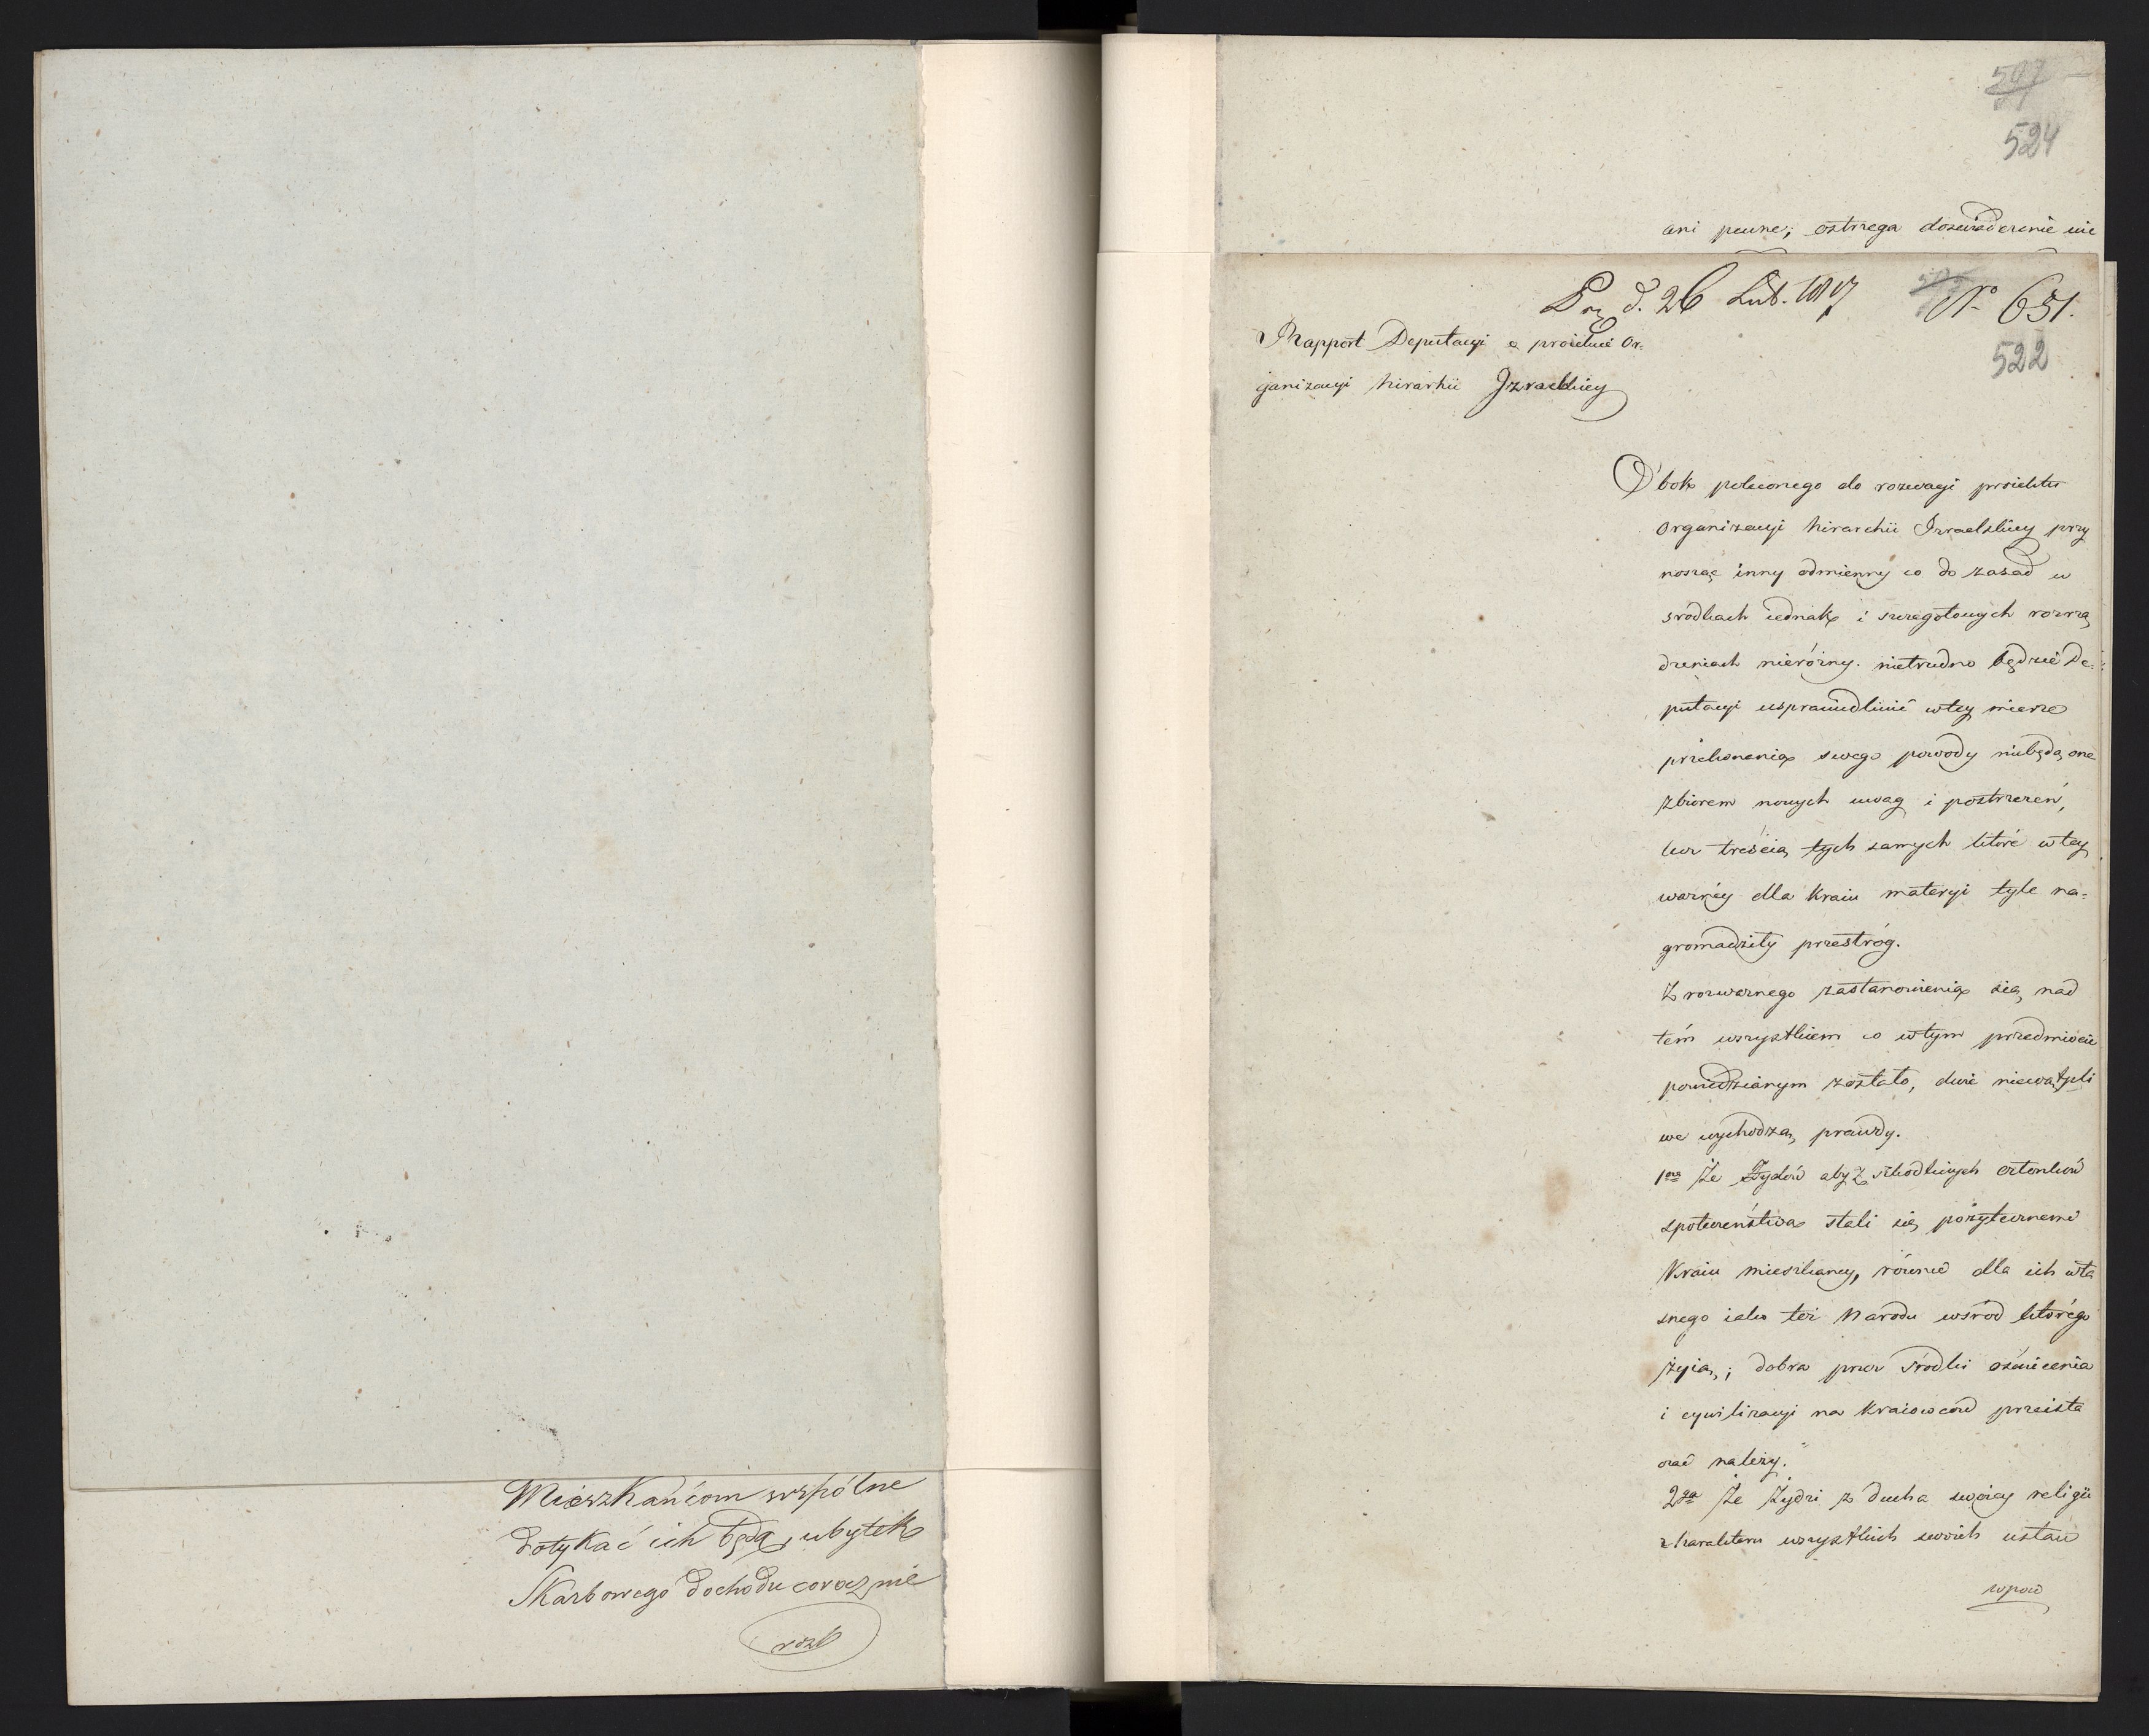 Mieszkańcom wspólne
dotykać ich będą, ubytek
Skarbowego dochodu coraz nie
524
ani pewne; ostrzega doswiadczenie nie
d. 26 Lut. 1817 No 651.
522
Rapport Deputacyi z proiektu Or-
ganizacyi hirarhii Izraelskiey
Obok poleconego do rozwagi proiektu
Organizacyi hirarchii Izraelskiey przy
nosząc inny odmienny co do zasad w
srodkach iednak i szczegołowych rozrzą
dzeniach nierózny. nietrudno będzie De-
putacyi usprawiedliwić wtey mierze
przekonania swego powody niebędą one
zbiorem nowych uwag i postrzezeń,
lecz treścią tych samych które wtey
wazney dla Kraiu materyi tyle na-
gromadziły przestróg.
Z rozwaznego zastanowienia się nad
tém wszystkiem co wtym przedmiocie
powiedzianym zostało, dwie niewątpli
we wychodzą prawdy.
1sza Że Żydów aby z szkodliwych członków
społeczeństwa stali się pożytecznemi
Kraiu mieszkancy, równie dla ich wła
snego iako tez Narodu wśrod którego
żyią; dobra przez środki oświecenia
i cywilizacyi na Kraiowców przeista
czać nalezy.
2ga Że Żydzi z ducha swoiey religii
z karakteru wszystkich swoich ustaw
wpow